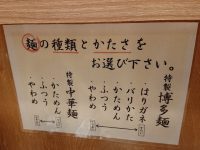 麺の種類とかたさを
お選び下さい。
特製博多麺
・はりガネ
・バリかた
・かためん
・ふつう
・やわめ
特製中華麺
・かためん
・ふつう
・やわめ